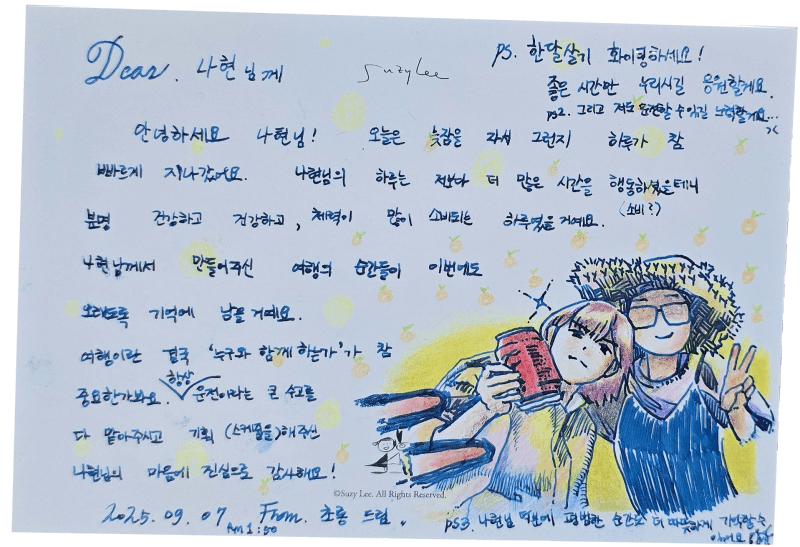 Dear. 나현님께
suzylee
ps. 한달살기 화이팅하세요!
좋은 시간만 누리시길 응원할게요.
ps2. 그리고 저도 운전할 수 있길 노력할게요...
안녕하세요 나현님! 오늘은 늦잠을 자서 그런지 하루가 참
빠르게 지나갔어요. 나현님의 하루는 저보다 더 많은 시간을 행동하셨을테니
(소비?)
분명 건강하고 건강하고, 체력이 많이 소비되는 하루였을 거예요.
나현님께서 만들어주신 여행의 순간들이 이번에도
오래도록 기억에 남을 거예요.
여행이란 결국 '누구와 함께 하는가'가 참
중요한가봐요. 항상 운전이라는 큰 수고를
다 맡아주시고 기획 (스케줄을)해주신
나현님의 마음에 진심으로 감사해요!
©Suzy Lee. All Rights Reserved.
2025. 09. 07 From. 초롱 드림.
Am 1:50
ps3. 나현님 덕분에 평범한 순간도 더 따뜻하게 기억할 수
있어요